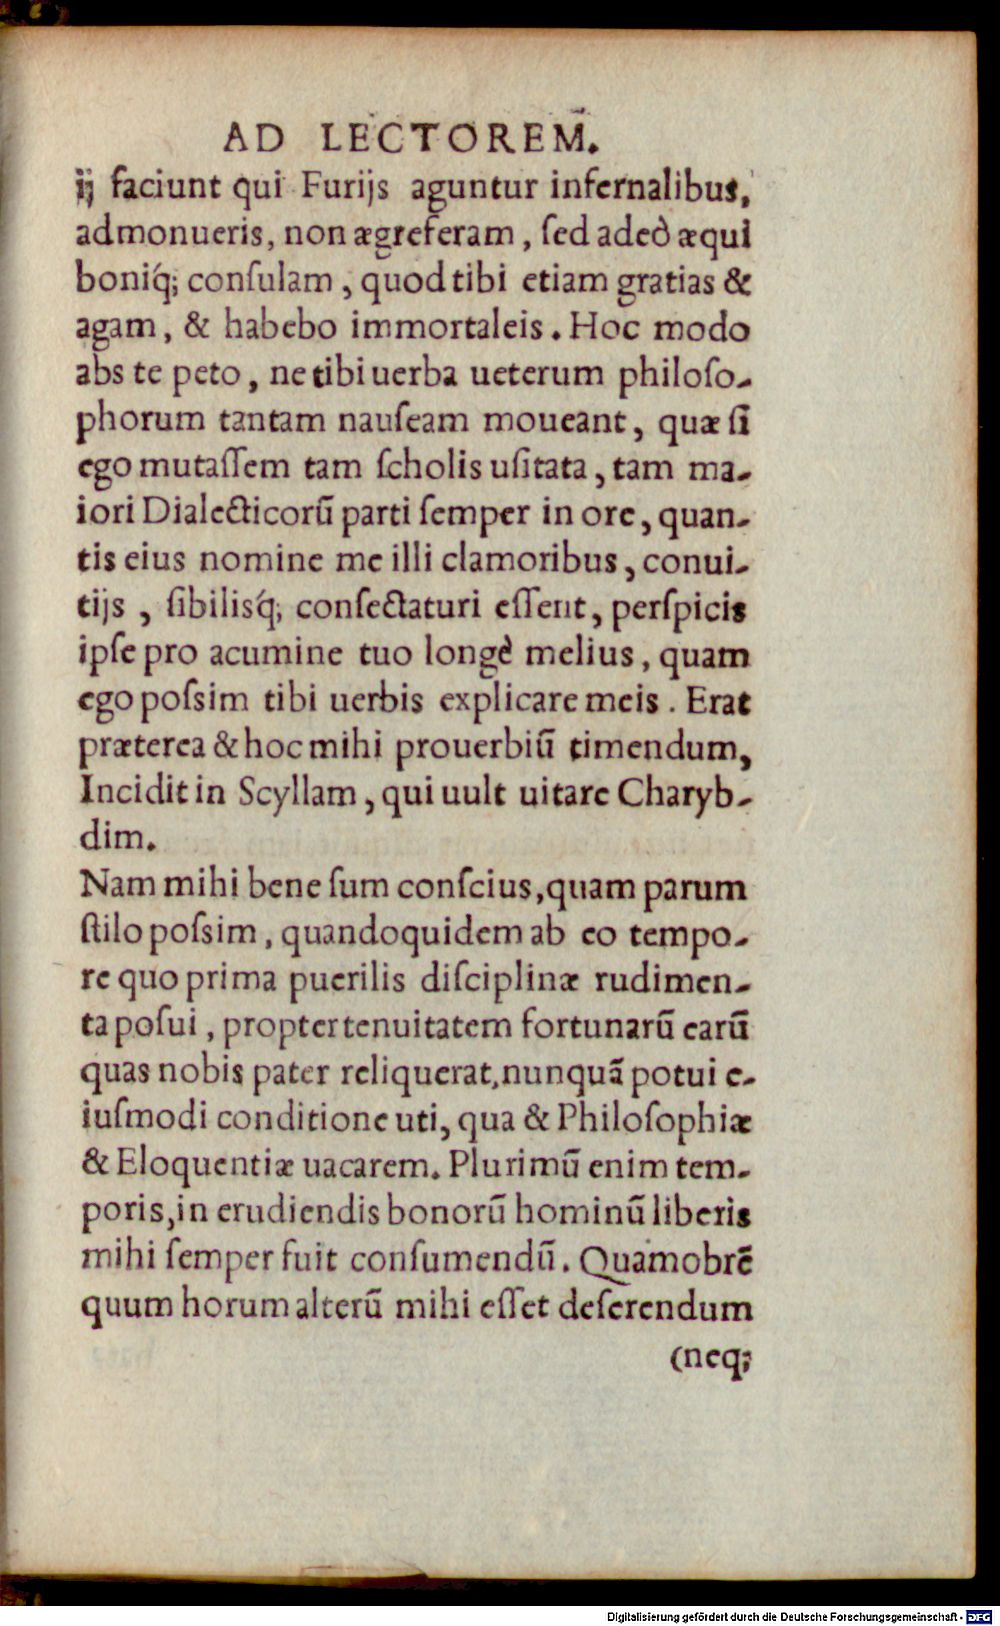 AD LECTOREM.
ij faciunt qui Furijs aguntur infernalibus,
admonueris, non ægreferam, ſed adeò æqui
boniq́; conſulam, quod tibi etiam gratias &
agam, & habebo immortaleis. Hoc modo
abs te peto, ne tibi uerba ueterum philoſo-
phorum tantam nauſeam moueant, quæ ſi
ego mutaſſem tam ſcholis uſitata, tam ma-
iori Dialecticorū parti ſemper in ore, quan-
tis eius nomine me illi clamoribus, conui-
tijs, ſibilisq́; conſectaturi eſſent, perſpicis
ipſe pro acumine tuo longè melius, quam
ego poſsim tibi uerbis explicare meis. Erat
præterea & hoc mihi prouerbiū timendum,
Incidit in Scyllam, qui uult uitare Charyb-
dim.
Nam mihi bene ſum conſcius, quam parum
ſtilo poſsim, quandoquidem ab eo tempo-
re quo prima puerilis diſciplinæ rudimen-
ta poſui, propter tenuitatem fortunarū earū
quas nobis pater reliquerat, nunquā potui e-
iuſmodi conditione uti, qua & Philoſophiæ
& Eloquentiæ uacarem. Plurimū enim tem-
poris, in erudiendis bonorū hominū liberis
mihi ſemper fuit conſumendū. Quamobrē
quum horum alterū mihi eſſet deſerendum
(neq;
Digitalisierung gefördert durch die Deutsche Forschungsgemeinschaft - DFG